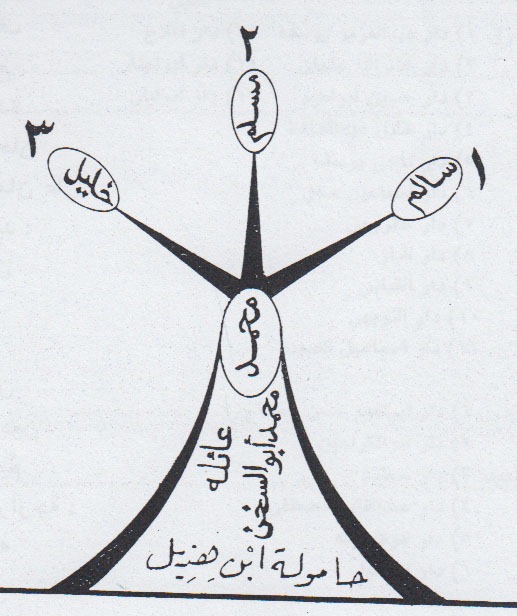 ٢
مسلم
٣
خليل
١
سالم
محمد
عائلة
محمد أبو السخن
حامولة ابن هزيل